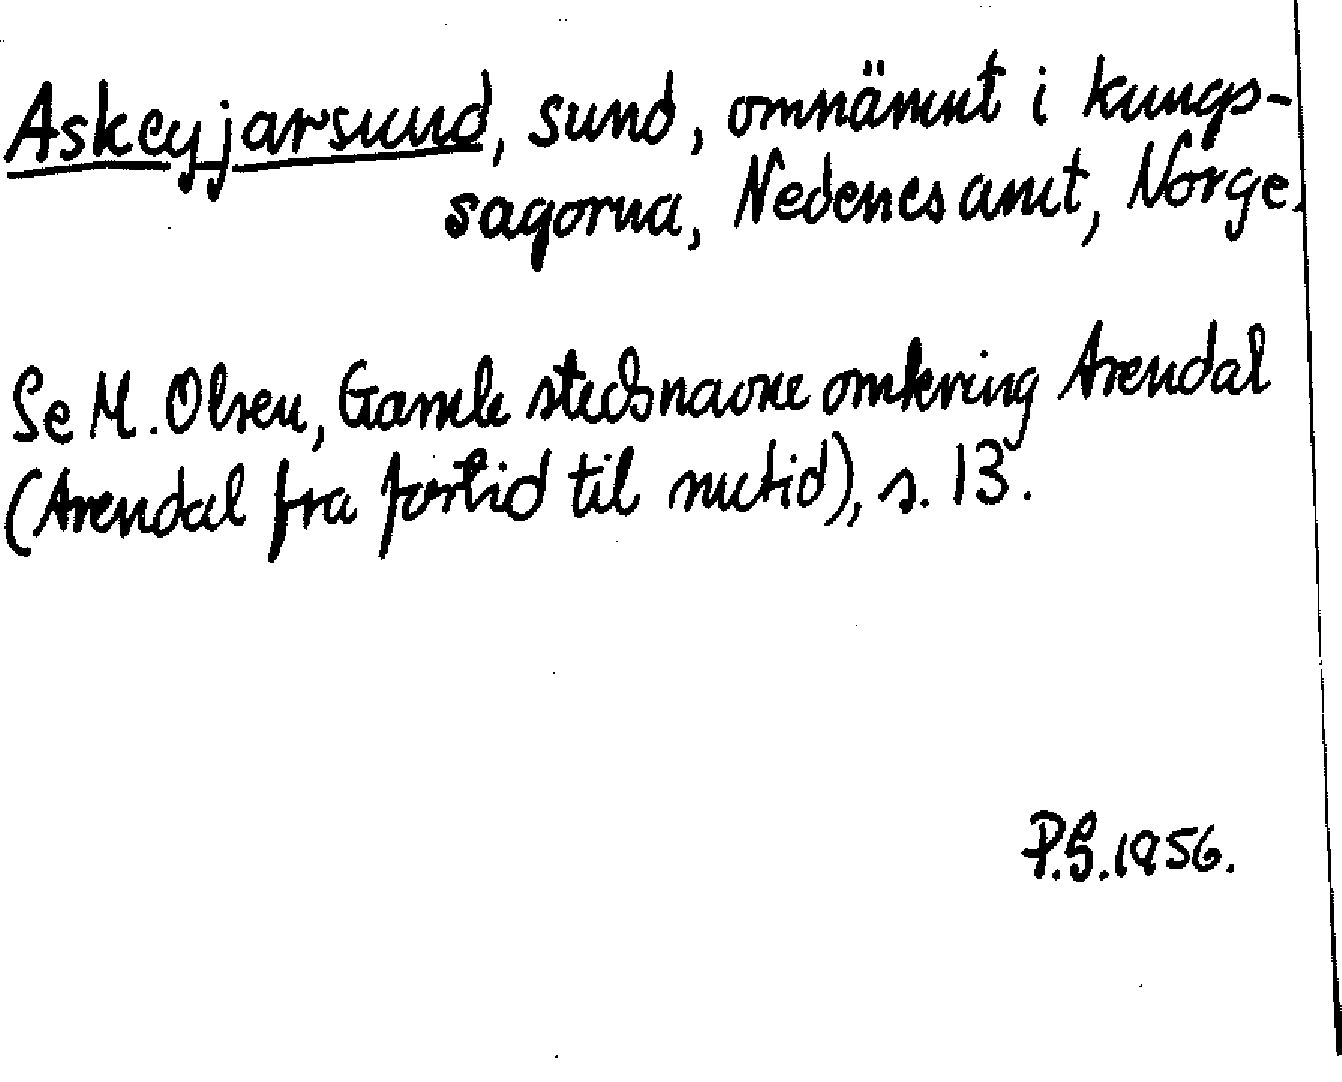 Askeyjarsund, sund, omnämnt i kungs-
sagorna, Nedenes amt, Norge.
Se M. Olsen, Gamle stedsnavne omkring Arendal
(Arendal fra fortid til nutid), s. 13.
P.S. 1956.